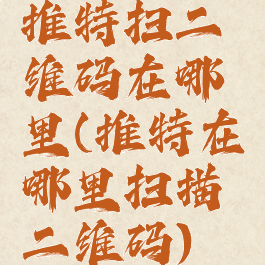 推特扫二
维码在哪
里(推特在
哪里扫描
二维码)